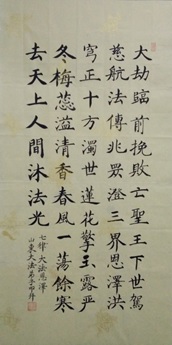 大劫臨前挽敗亡聖王下世駕
慈航法傳兆眾澄三界恩澤洪
穹正十方濁世蓮花擎玉露嚴
冬梅蕊溢清香春風一蕩餘寒
去天上人間沐法光
七律 大法恩澤
山東大法弟子